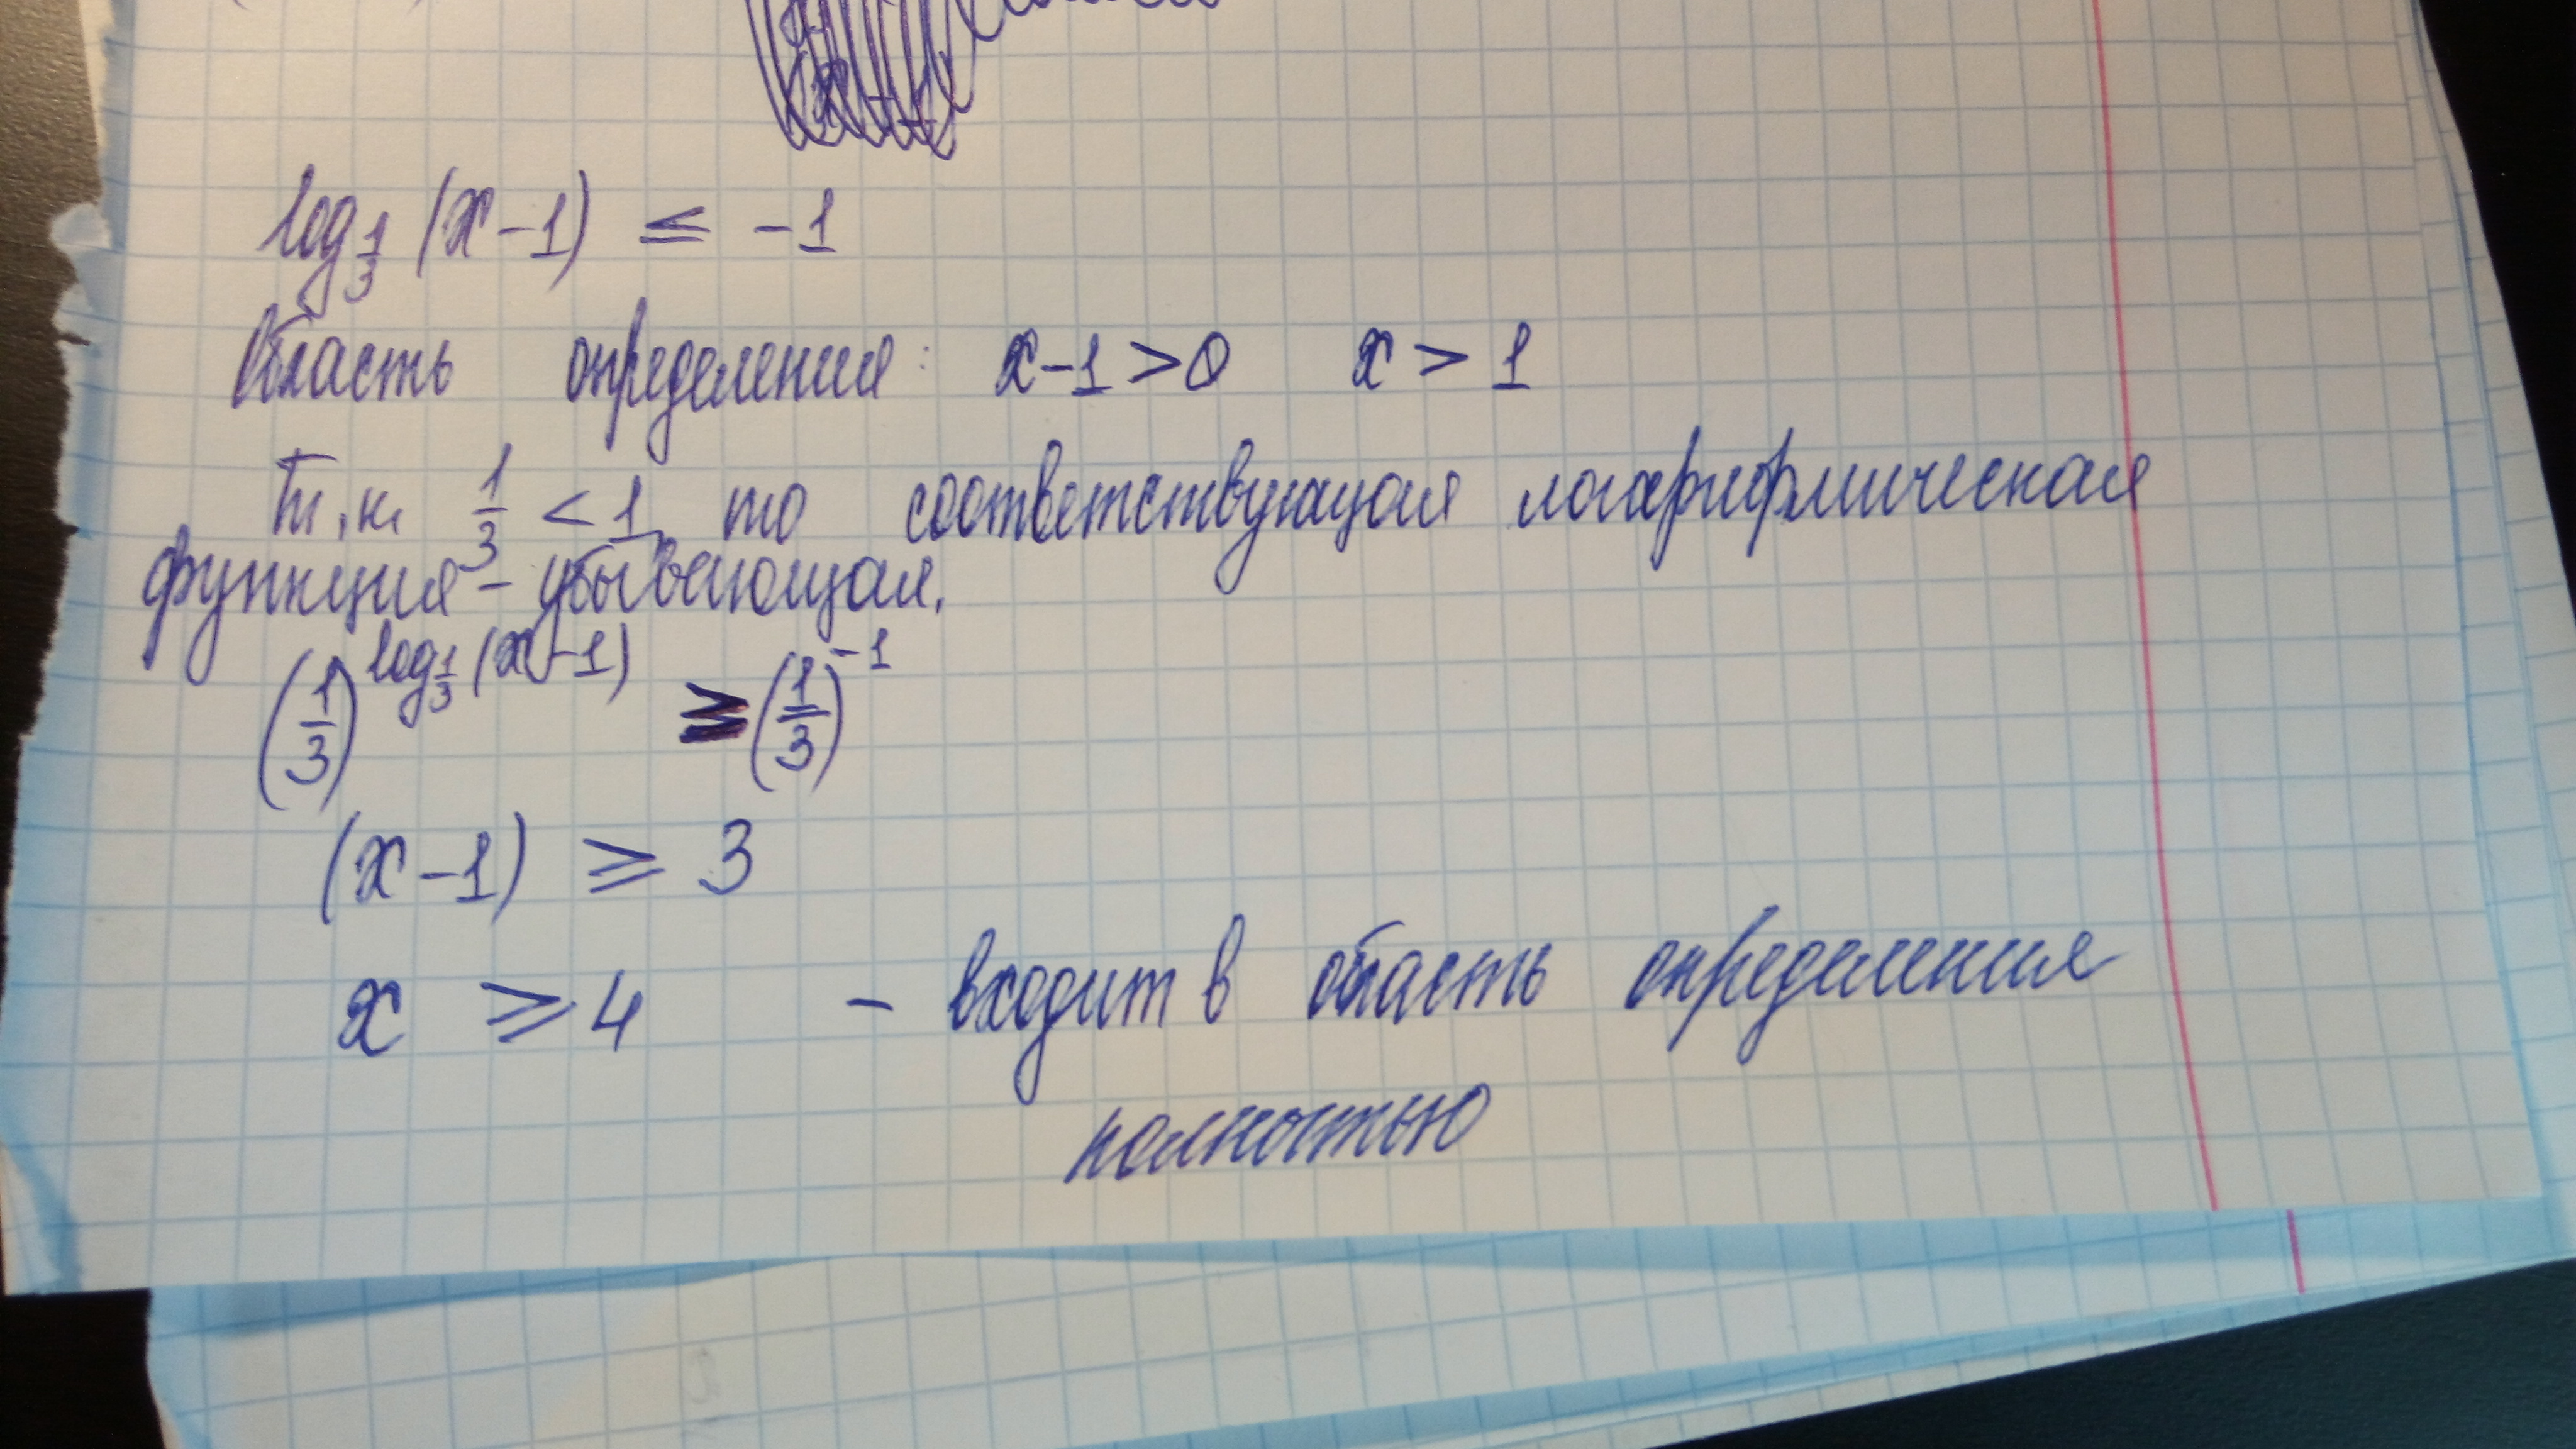 log_{1/3} (x-1) ≤ -1
Область определения: x-1>0 x > 1
Т.к. 1/3 < 1, то соответствующая логарифмическая
функция - убывающая.
(1/3)^{log_{1/3}(x-1)} ≥ (1/3)^{-1}
(x-1) ≥ 3
x ≥ 4 - входит в область определения
полностью